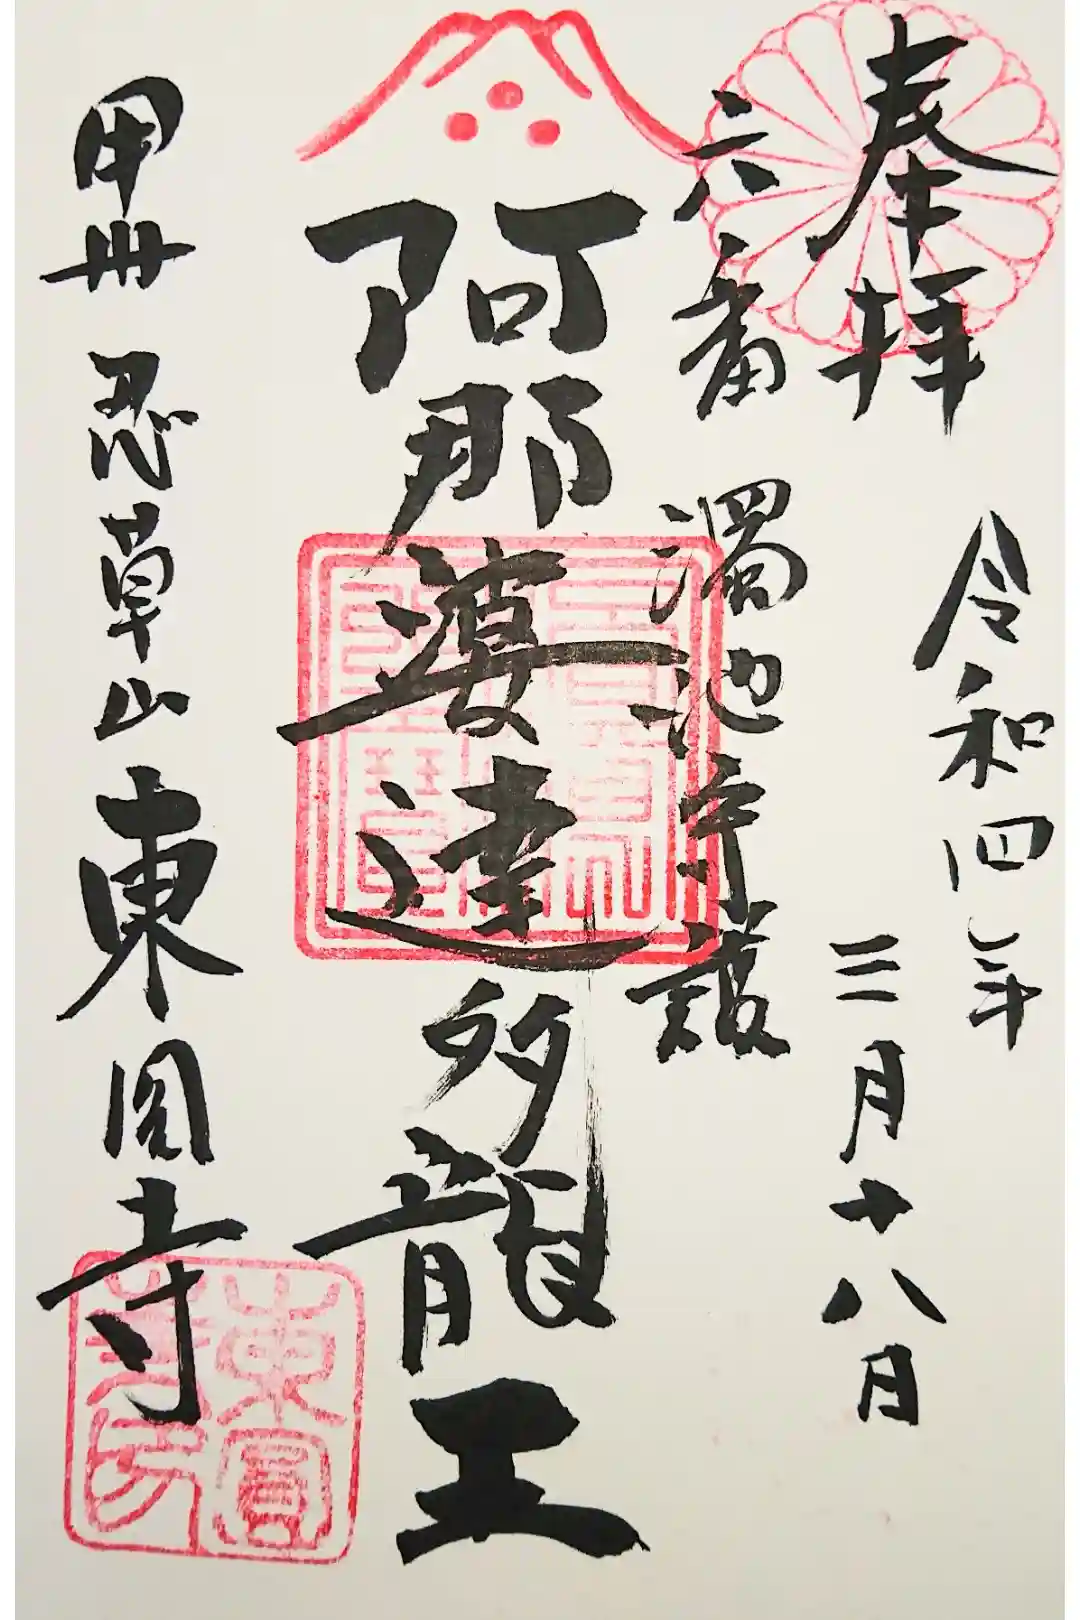 奉拝
令和四年
三月十八日
六番 濁池守護
阿那婆達多龍王
甲州 忍草山 東圓寺
東圓寺印